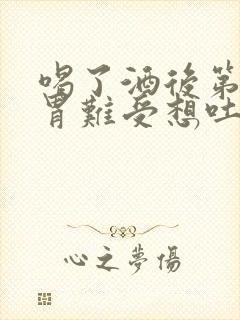 喝了酒後第
胃難受想吐
心之夢傷